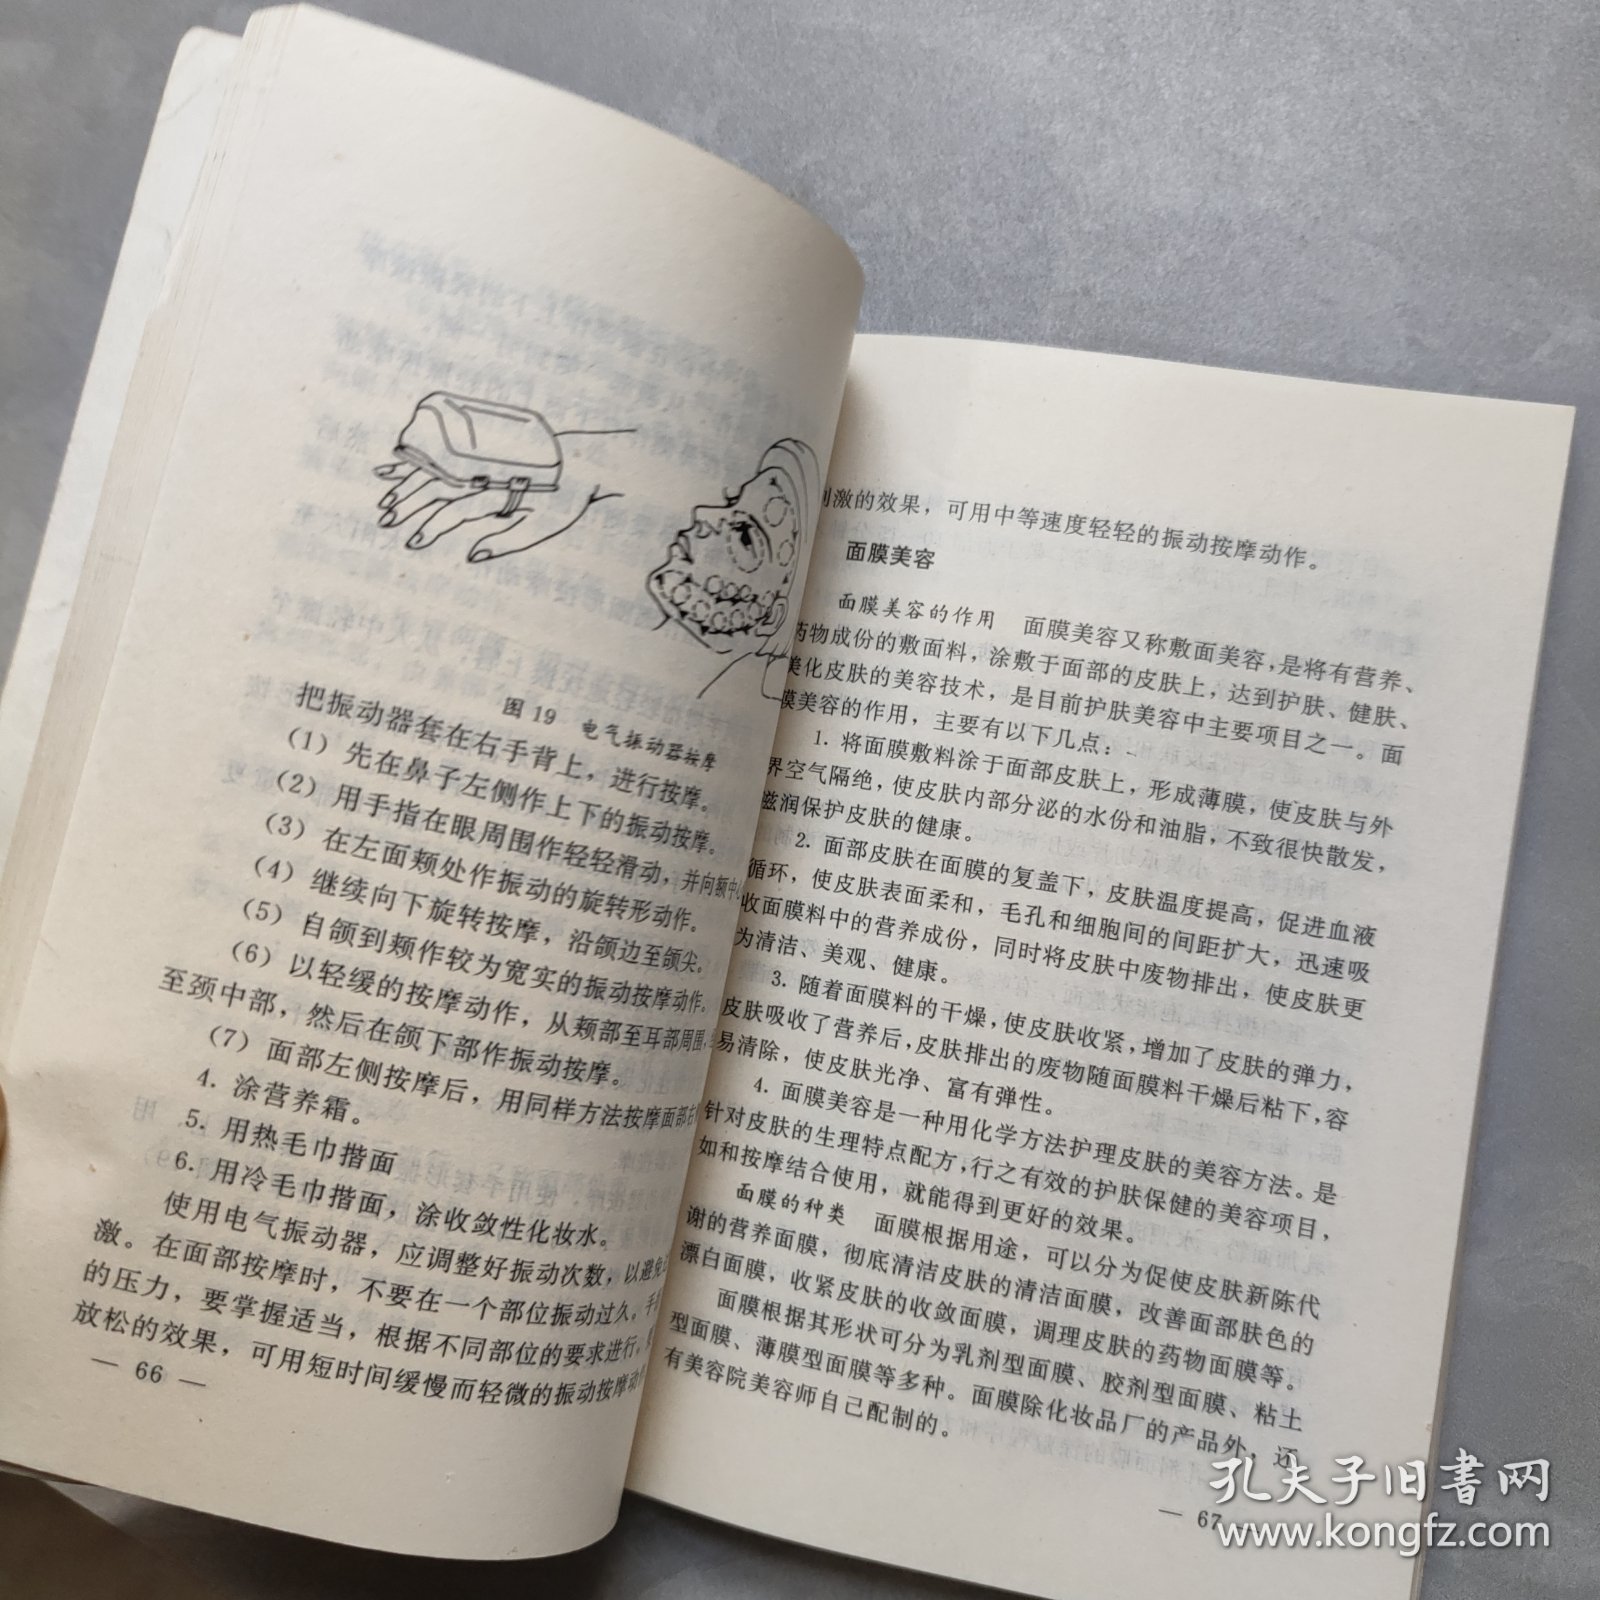 图 19 电气振动器按摩
把振动器套在右手背上，进行按摩。
（1）先在鼻子左侧作上下的振动按摩。
（2）用手指在眼周围作轻轻滑动，并向额中
（3）在左面颊处作振动的旋转形动作。
（4）继续向下旋转按摩，沿颌边至颌尖。
（5）自颌到颊作较为宽实的振动按摩动作。
（6）以轻缓的按摩动作，从颊部至耳部周围，
至颈中部，然后在颌下部作振动按摩。
（7）面部左侧按摩后，用同样方法按摩面部右
4. 涂营养霜。
5. 用热毛巾揩面
6. 用冷毛巾揩面，涂收敛性化妆水。
使用电气振动器，应调整好振动次数，以避免
激。在面部按摩时，不要在一个部位振动过久。手
的压力，要掌握适当，根据不同部位的要求进行。
放松的效果，可用短时间缓慢而轻微的振动按摩动
— 66 —
激的效果，可用中等速度轻轻的振动按摩动作。
面膜美容
面膜美容的作用 面膜美容又称敷面美容，是将有营养、
药物成份的敷面料，涂敷于面部的皮肤上，达到护肤、健肤、
美化皮肤的美容技术，是目前护肤美容中主要项目之一。面
膜美容的作用，主要有以下几点：
1. 将面膜敷料涂于面部皮肤上，形成薄膜，使皮肤与外
界空气隔绝，使皮肤内部分泌的水份和油脂，不致很快散发，
滋润保护皮肤的健康。
2. 面部皮肤在面膜的复盖下，皮肤温度提高，促进血液
循环，使皮肤表面柔和，毛孔和细胞间的间距扩大，迅速吸
收面膜料中的营养成份，同时将皮肤中废物排出，使皮肤更
为清洁、美观、健康。
3. 随着面膜料的干燥，使皮肤收紧，增加了皮肤的弹力，
皮肤吸收了营养后，皮肤排出的废物随面膜料干燥后粘下，容
易清除，使皮肤光净、富有弹性。
4. 面膜美容是一种用化学方法护理皮肤的美容方法。是
针对皮肤的生理特点配方，行之有效的护肤保健的美容项目，
如和按摩结合使用，就能得到更好的效果。
面膜的种类 面膜根据用途，可以分为促使皮肤新陈代
谢的营养面膜，彻底清洁皮肤的清洁面膜，改善面部肤色的
漂白面膜，收紧皮肤的收敛面膜，调理皮肤的药物面膜等。
面膜根据其形状可分为乳剂型面膜、胶剂型面膜、粘土
型面膜、薄膜型面膜等多种。面膜除化妆品厂的产品外，还
有美容院美容师自己配制的。
— 67 —
孔夫子旧书网
www.kongfz.com